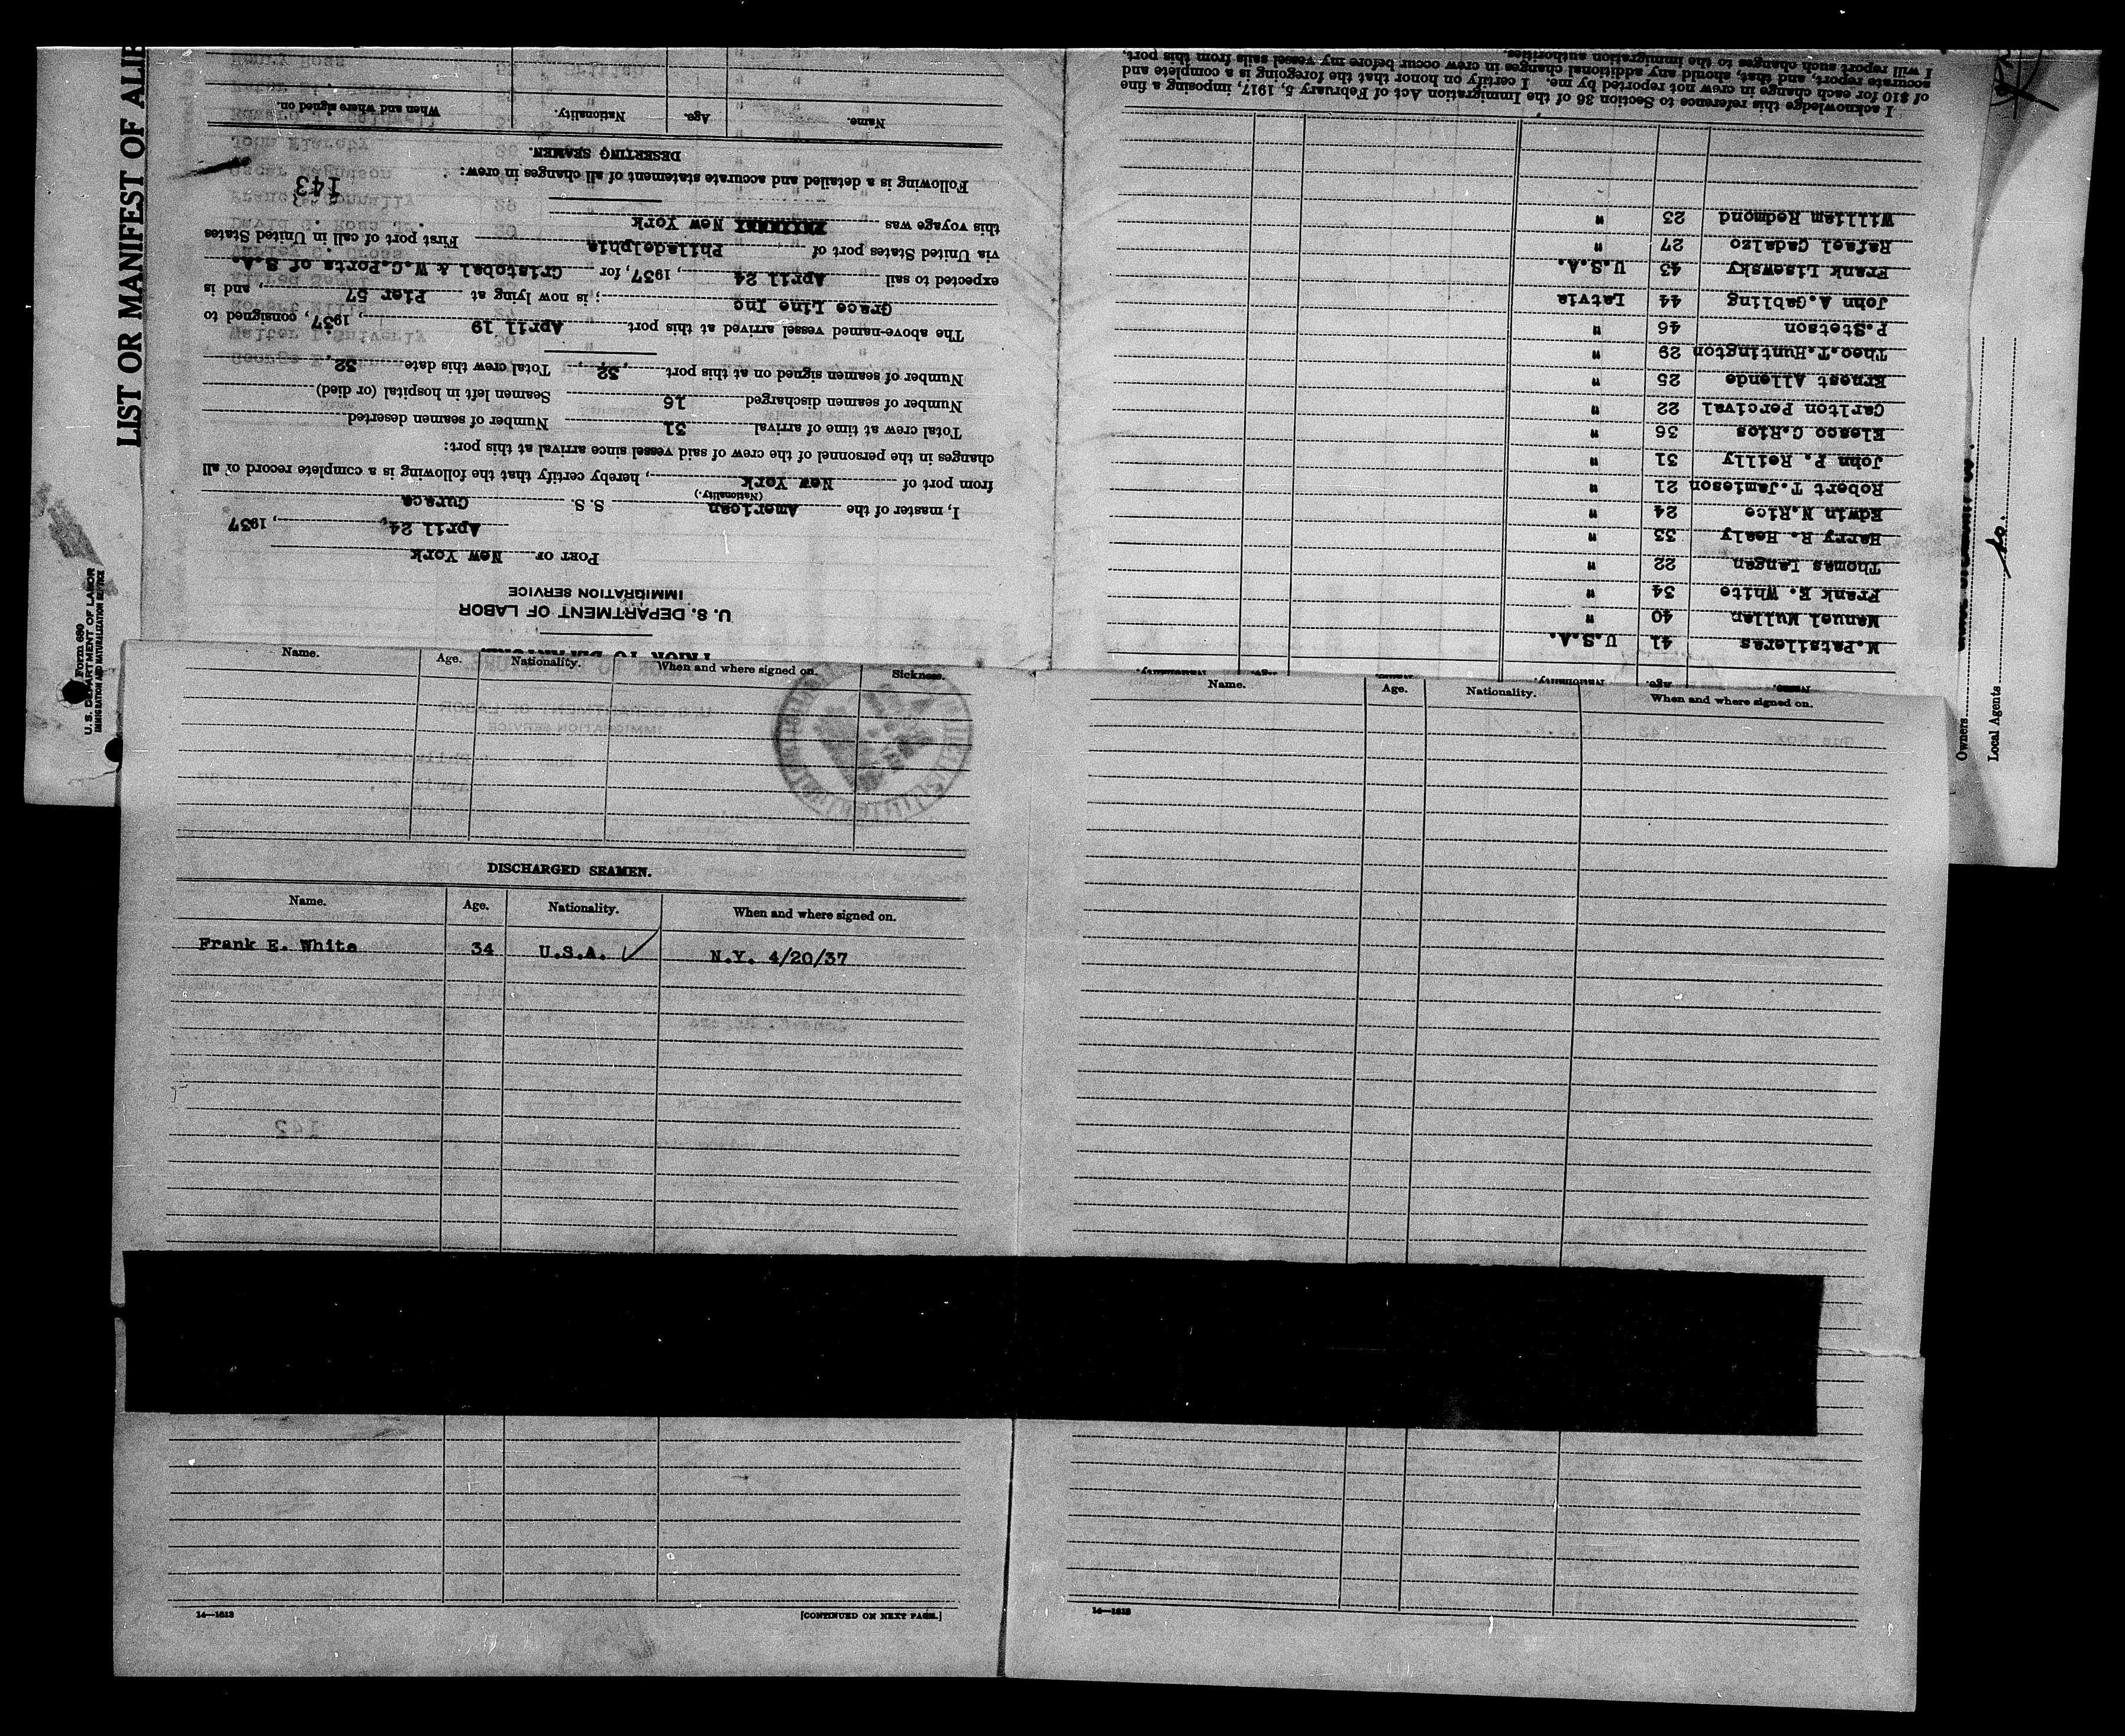 LIST OR MANIFEST OF ALIE
Form 680
U. S. DEPARTMENT OF LABOR
IMMIGRATION AND NATURALIZATION SERVICE
PRIOR TO DEPARTURE
U. S. DEPARTMENT OF LABOR
IMMIGRATION SERVICE
PORT OF New York
April 24, 1937
I, master of the American S. S. Curaca
(Nationality.)
from port of New York, hereby certify that the following is a complete record of all
changes in the personnel of the crew of said vessel since arrival at this port:
Total crew at time of arrival 31 Number of seamen deserted
Number of seamen discharged 16 Seamen left in hospital (or died)
Number of seamen signed on at this port 32 Total crew this date 32
The above-named vessel arrived at this port April 19, 1937, consigned to
Grace Line Inc; is now lying at Pier 57, and is
expected to sail April 24, 1937, for Cristobal & W.C.Ports of S.A.
via United States port of Philadelphia First port of call in United States
this voyage was New York
Following is a detailed and accurate statement of all changes in crew:
143
DESERTING SEAMEN.
Name. Age. Nationality. When and where signed on.
Name. Age. Nationality.
M.Patsileras 41 U.S.A.
Manuel Mullan 40 "
Frank E. White 34 "
Thomas Langan 22 "
Harry R. Healy 33 "
Edwin N.Rice 24 "
Robert T.Jamieson 21 "
John P. Reilly 31 "
Elesco C.Rios 36 "
Carlton Percival 22 "
Ernest Allende 25 "
Theo.T.Huntington 29 "
P.Stetson 46 "
John A.Gabling 44 Latvia
Frank Lisewsky 43 U.S.A.
Rafael Cadalzo 27 "
William Redmond 23 "
I acknowledge this reference to Section 36 of the Immigration Act of February 5, 1917, imposing a fine
of $10 for each change in crew not reported by me. I certify on honor that the foregoing is a complete and
accurate report, and that, should any additional changes in crew occur before my vessel sails from this port,
I will report such changes to the immigration authorities.
Owners
Local Agents
Name. Age. Nationality. When and where signed on. Sickness.
DISCHARGED SEAMEN.
Name. Age. Nationality. When and where signed on.
Frank E. White 34 U.S.A. N.Y. 4/20/37
14—1613 [CONTINUED ON NEXT PAGE.]
Name. Age. Nationality. When and where signed on.
14—1613